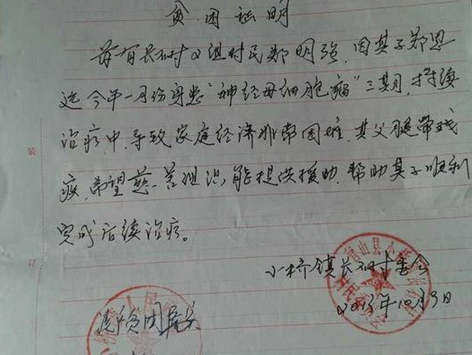 贫困证明
兹有长村口组村民郑明强,因其子郑恩
远今年一月份身患"神经母细胞瘤"三期,持续
治疗中,导致家庭经济非常困难,其父腿带残
疾,希望慈善组织能提供援助,帮助其子顺利
完成后续治疗。
小桥镇长村委会
10月9日
贫困